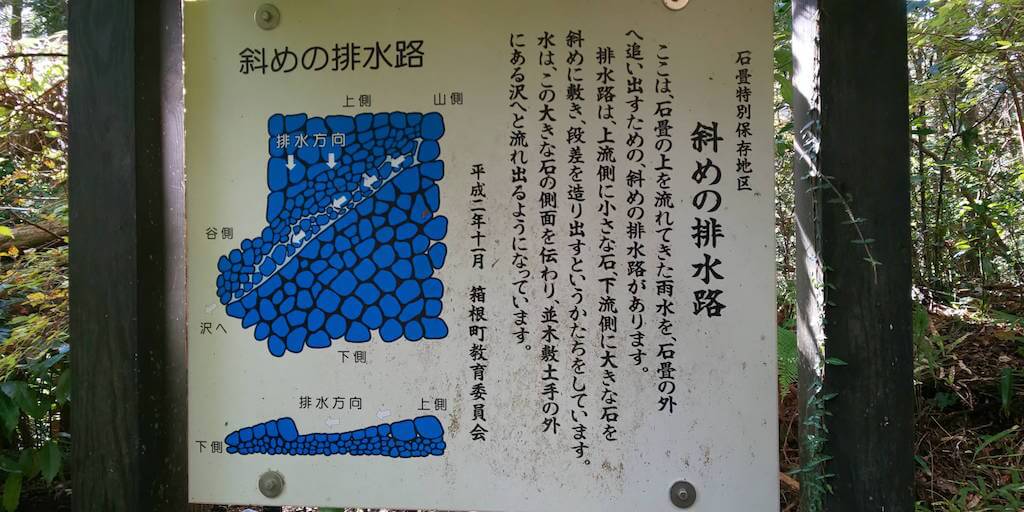 石畳特別保存地区
斜めの排水路
ここは、石畳の上を流れてきた雨水を、石畳の外
へ追い出すための、斜めの排水路があります。
排水路は、上流側に小さな石、下流側に大きな石を
斜めに敷き、段差を造り出すというかたちをしています。
水は、この大きな石の側面を伝わり、並木敷土手の外
にある沢へと流れ出るようになっています。
平成二年十一月　箱根町教育委員会
斜めの排水路
上側
山側
排水方向
谷側
沢へ
下側
排水方向
上側
下側